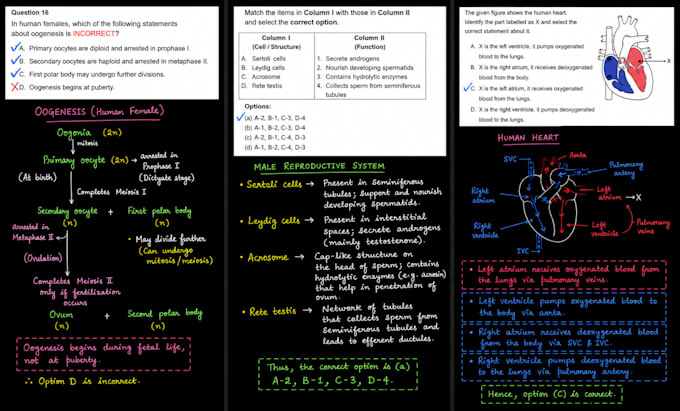 Question 16
In human females, which of the following statements
about oogenesis is INCORRECT?
A. Primary oocytes are diploid and arrested in prophase I.
B. Secondary oocytes are haploid and arrested in metaphase II.
C. First polar body may undergo further divisions.
D. Oogenesis begins at puberty.
OOGENESIS (Human Female)
Oogonia (2n)
mitosis
Primary oocyte (2n) → arrested in
Prophase I
(Dictyate stage)
(At birth)
Completes Meiosis I
Secondary oocyte + First polar body
(n) (n)
arrested in
Metaphase II
• May divide further
(Can undergo
mitosis/meiosis)
(Ovulation)
Completes Meiosis II
only if fertilization
occurs
Ovum + Second polar body
(n) (n)
Oogenesis begins during fetal life,
not at puberty.
∴ Option D is incorrect.
Match the items in Column I with those in Column II
and select the correct option.
Column I Column II
(Cell / Structure) (Function)
A. Sertoli cells 1. Secrete androgens
B. Leydig cells 2. Nourish developing spermatids
C. Acrosome 3. Contains hydrolytic enzymes
D. Rete testis 4. Collects sperm from seminiferous
tubules
Options:
(a) A-2, B-1, C-3, D-4
(b) A-1, B-2, C-3, D-4
(c) A-2, B-1, C-4, D-3
(d) A-1, B-2, C-4, D-3
MALE REPRODUCTIVE SYSTEM
• Sertali cells → Present in Seminiferous
tubules; Support and nourish
developing spermatids.
• Leydig cells → Present in interstitial
spaces; secrete androgens
(mainly testosterone).
• Acresome → Cap-like structure on
the head of sperm; contains
hydrolytic enzymes (e.g. acrosin)
that help in penetration of
ovum.
• Rete testis → Network of tubules
that collects sperm from
Seminiferous tubules and
leads to efferent ductules.
Thus, the correct option is (a)
A-2, B-1, C-3, D-4.
The given figure shows the human heart.
Identify the part labelled as X and select the
correct statement about it.
A. X is the left ventricle, it pumps oxygenated
blood to the lungs.
B. X is the right atrium, it receives deoxygenated
blood from the body.
C. X is the left atrium, it receives oxygenated
blood from the lungs.
D. X is the right ventricle, it pumps deoxygenated
blood to the lungs.
X
HUMAN HEART
SVC
Aorta
Pulmonary
artery
Right
atrium
Left
atrium → X
Right
ventricle
Left
ventricle
Pulmonary
veins
IVC
• Left atrium receives oxygenated blood from
the lungs via pulmonary veins.
• Left ventricle pumps oxygenated blood to
the body via aorta.
• Right atrium receives deoxygenated blood
from the body via SVC & IVC.
• Right ventricle pumps deoxygenated blood
to the lungs via pulmonary artery.
Hence, option (C) is correct.